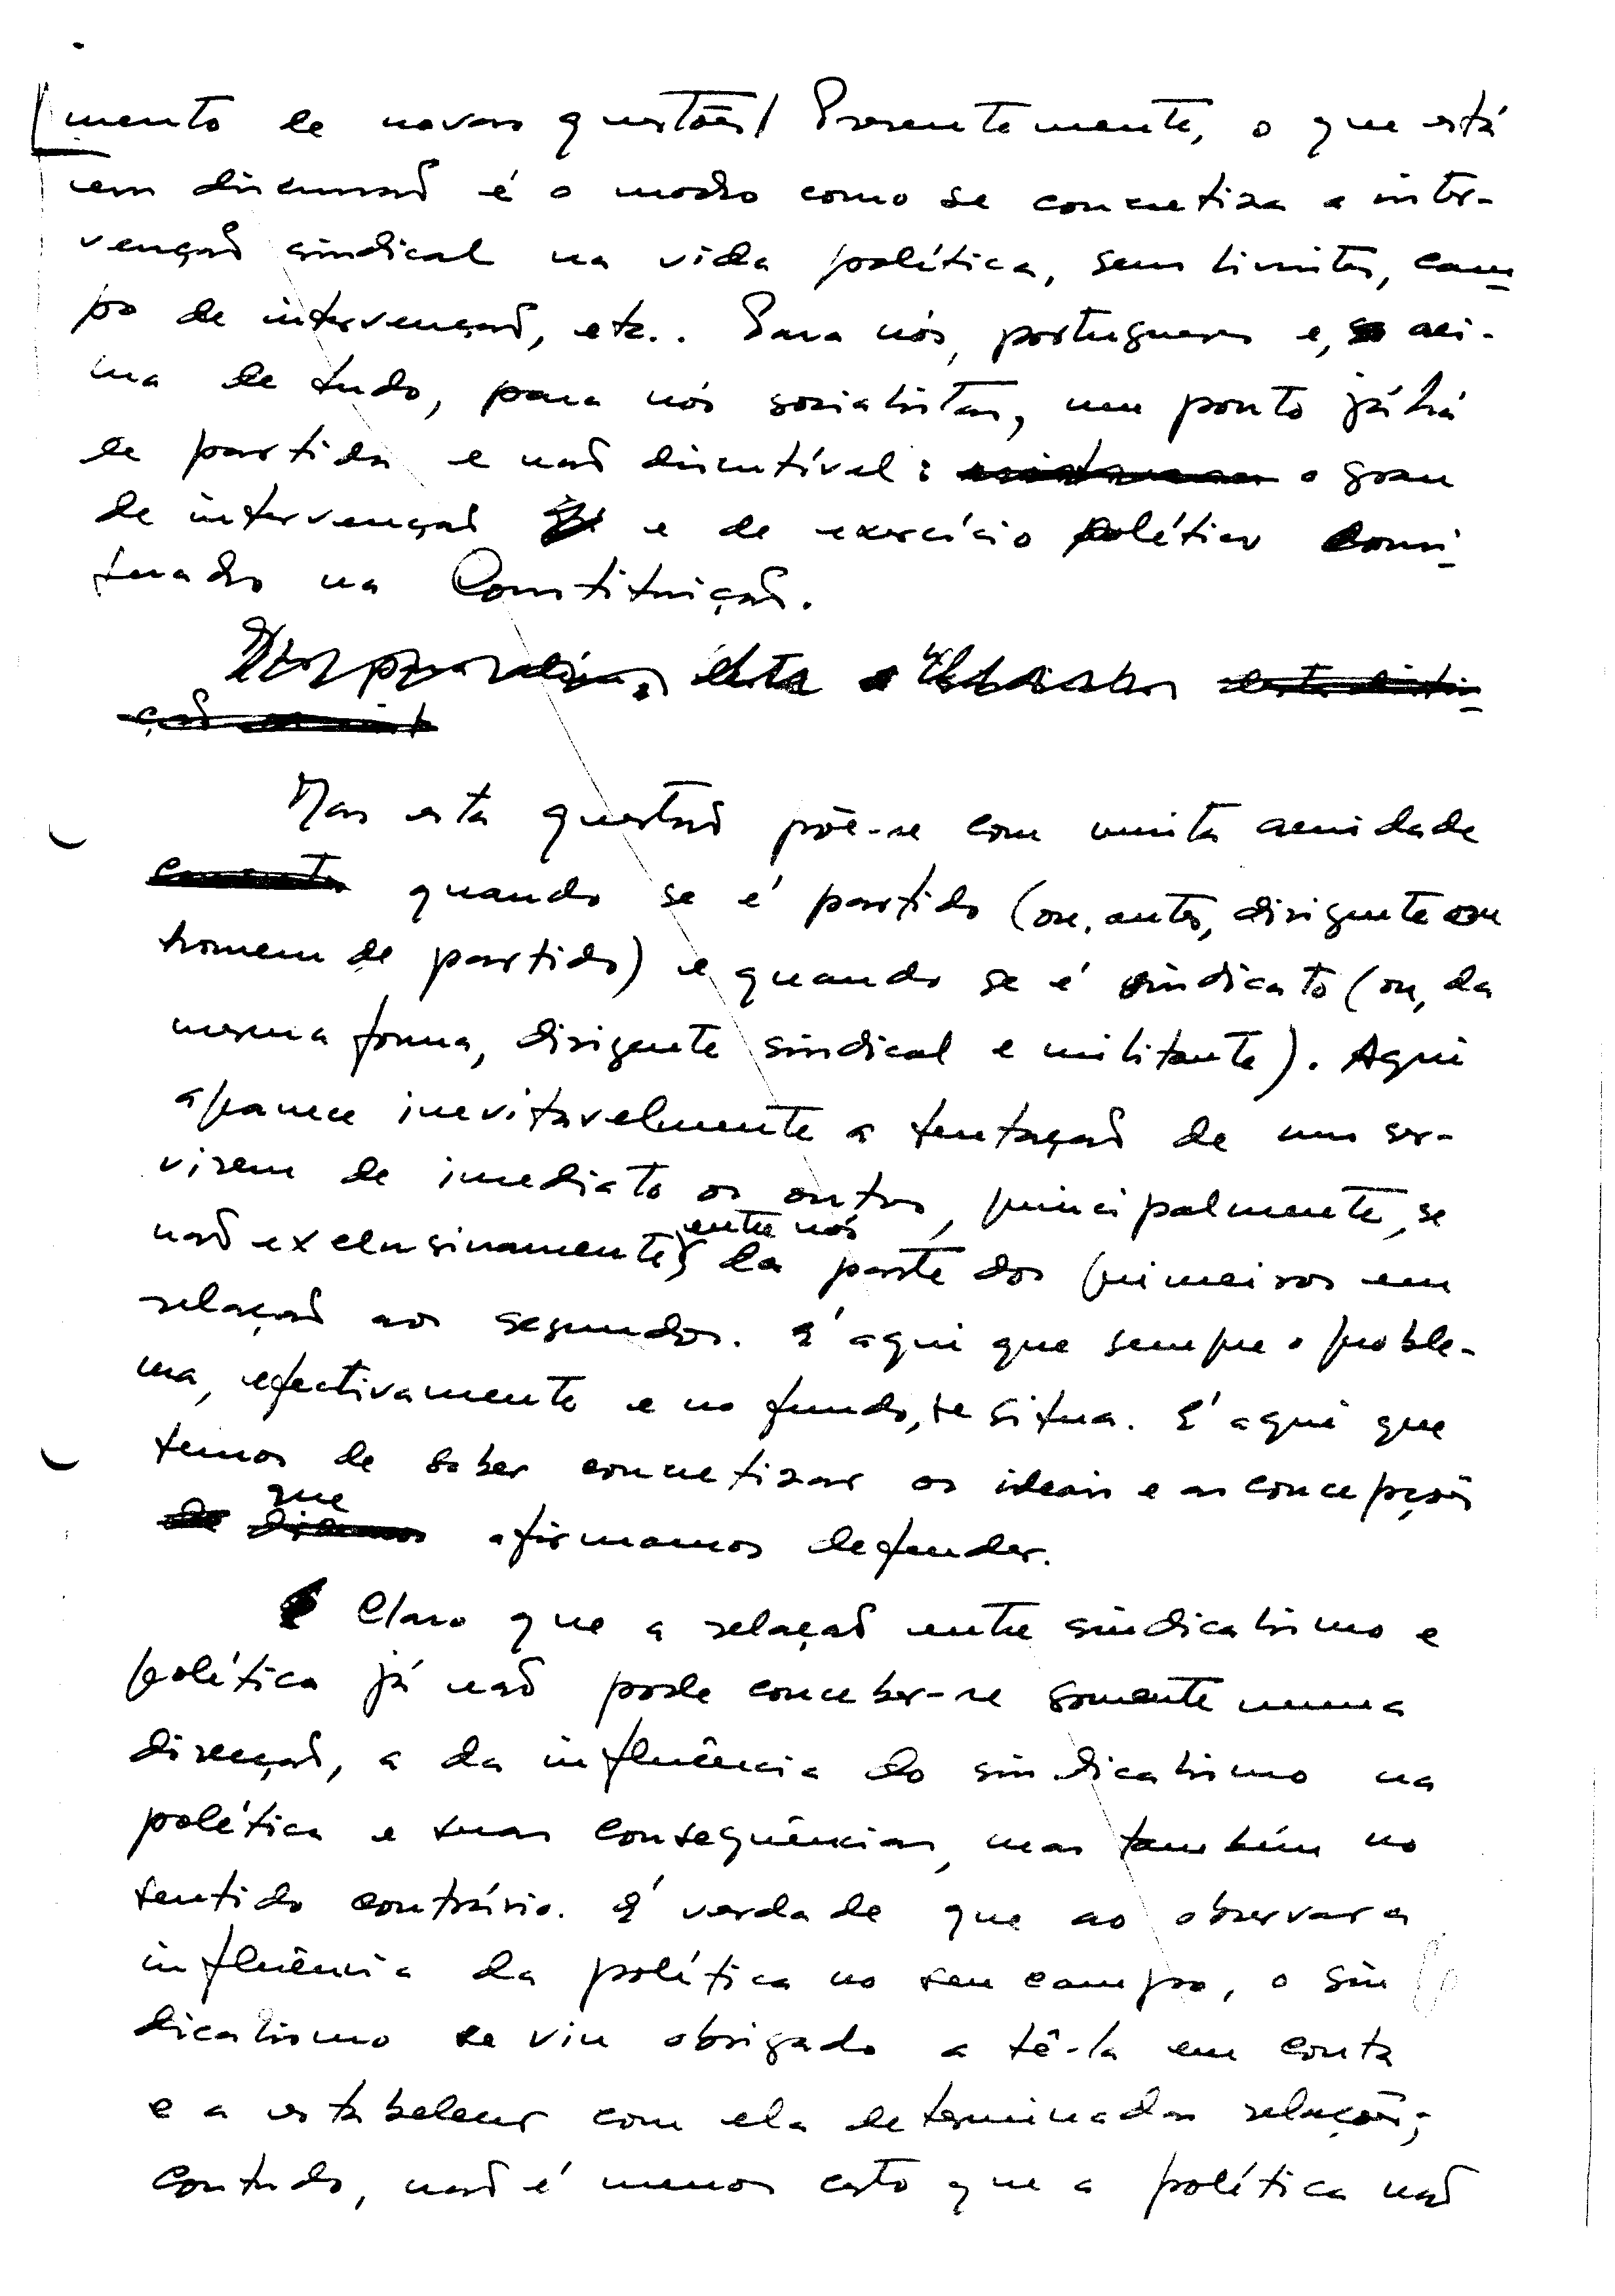 mento de novas questões/ Presentemente, o que está
em discussão é o modo como se concretiza a inter-
venção sindical na vida política, seus limites, cam-
po de intervenção, etc.. Para nós, portugueses e, aci-
ma de tudo, para nós socialistas, um ponto já há
de partida e não discutível: o grau
de intervenção e de exercício político consi-
tuado na Constituição.
Mas esta questão põe-se com muita acuidade
quando se é partido (ou, antes, dirigente ou
homem de partido) e quando se é sindicato (ou, da
mesma forma, dirigente sindical e militante). Aqui
aparece inevitavelmente a tentação de uns ser-
virem de imediato os outros, principalmente, se
não exclusivamente, entre nós da parte dos primeiros em
relação aos segundos. É aqui que sempre o proble-
ma, efectivamente e no fundo, se situa. É aqui que
temos de saber concretizar os ideais e as concepções
que afirmamos defender.
Claro que a relação entre sindicalismo e
política já não pode conceber-se somente numa
direcção, a da influência do sindicalismo na
política e suas consequências, mas também no
sentido contrário. É verdade que ao observar a
influência da política no seu campo, o sin
dicalismo se viu obrigado a tê-la em conta
e a estabelecer com ela determinadas relações;
contudo, não é menos certo que a política não